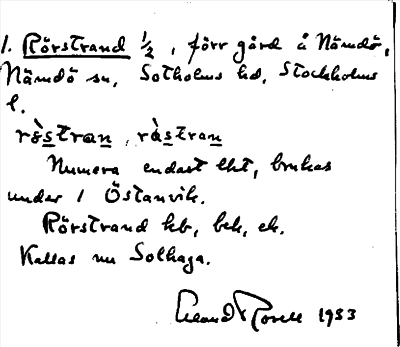 1. Rörstrand 1/2, förr gård å Nämdö,
Nämdö sn, Sotholms hd, Stockholms
l.
rö̀stran, rà̊stran
Numera endast lht, brukas
under 1 Östanvik.
Rörstrand kb, bek, ek.
Kallas nu Solhaga.
1953